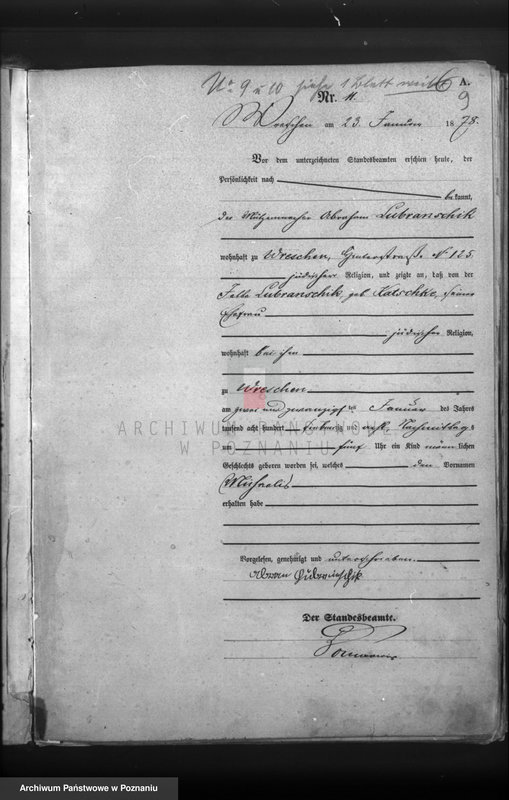 No 9 u 10 siehe 1 Blatt weiter
A.
9
Nr. 11.
Wreschen am 23. Januar 1878.
Vor dem unterzeichneten Standesbeamten erschien heute, der
Persönlichkeit nach
bekannt,
der Mützenmacher Abraham Lubranschik
wohnhaft zu Wreschen, No 125
jüdischer Religion, und zeigte an, daß von der
Lubranschik, geb. Katschke, seiner
Ehefrau
jüdischer Religion,
wohnhaft bei ihm
zu Wreschen
am zwei und zwanzigsten Januar des Jahres
tausend acht hundert siebenzig und acht, Nachmittags
um fünf Uhr ein Kind männlichen
Geschlechts geboren worden sei, welches den Vornamen
Michaelis
erhalten habe
Vorgelesen, genehmigt und unterschrieben.
Lubranschik
Der Standesbeamte.
ARCHIWUM PAŃSTWOWE
W POZNANIU
Archiwum Państwowe w Poznaniu